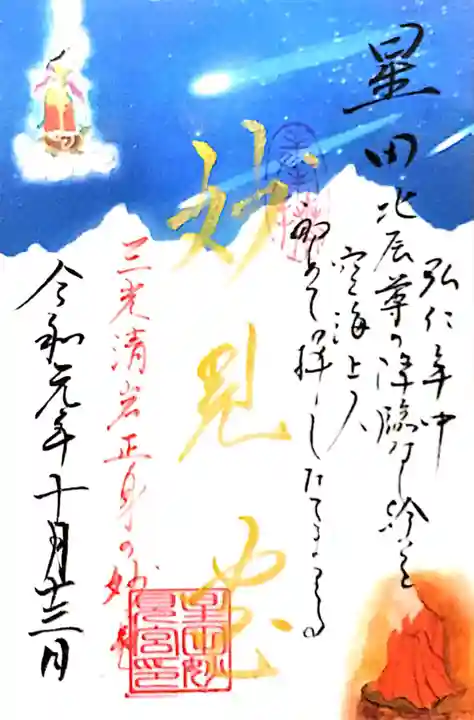 星田
妙見宮
弘仁年中
北辰尊の降臨なし給を
空海上人
初めて拝したてまつる。
三光清岩正身の妙見
令和元年十月十三日
星田妙
見宮印